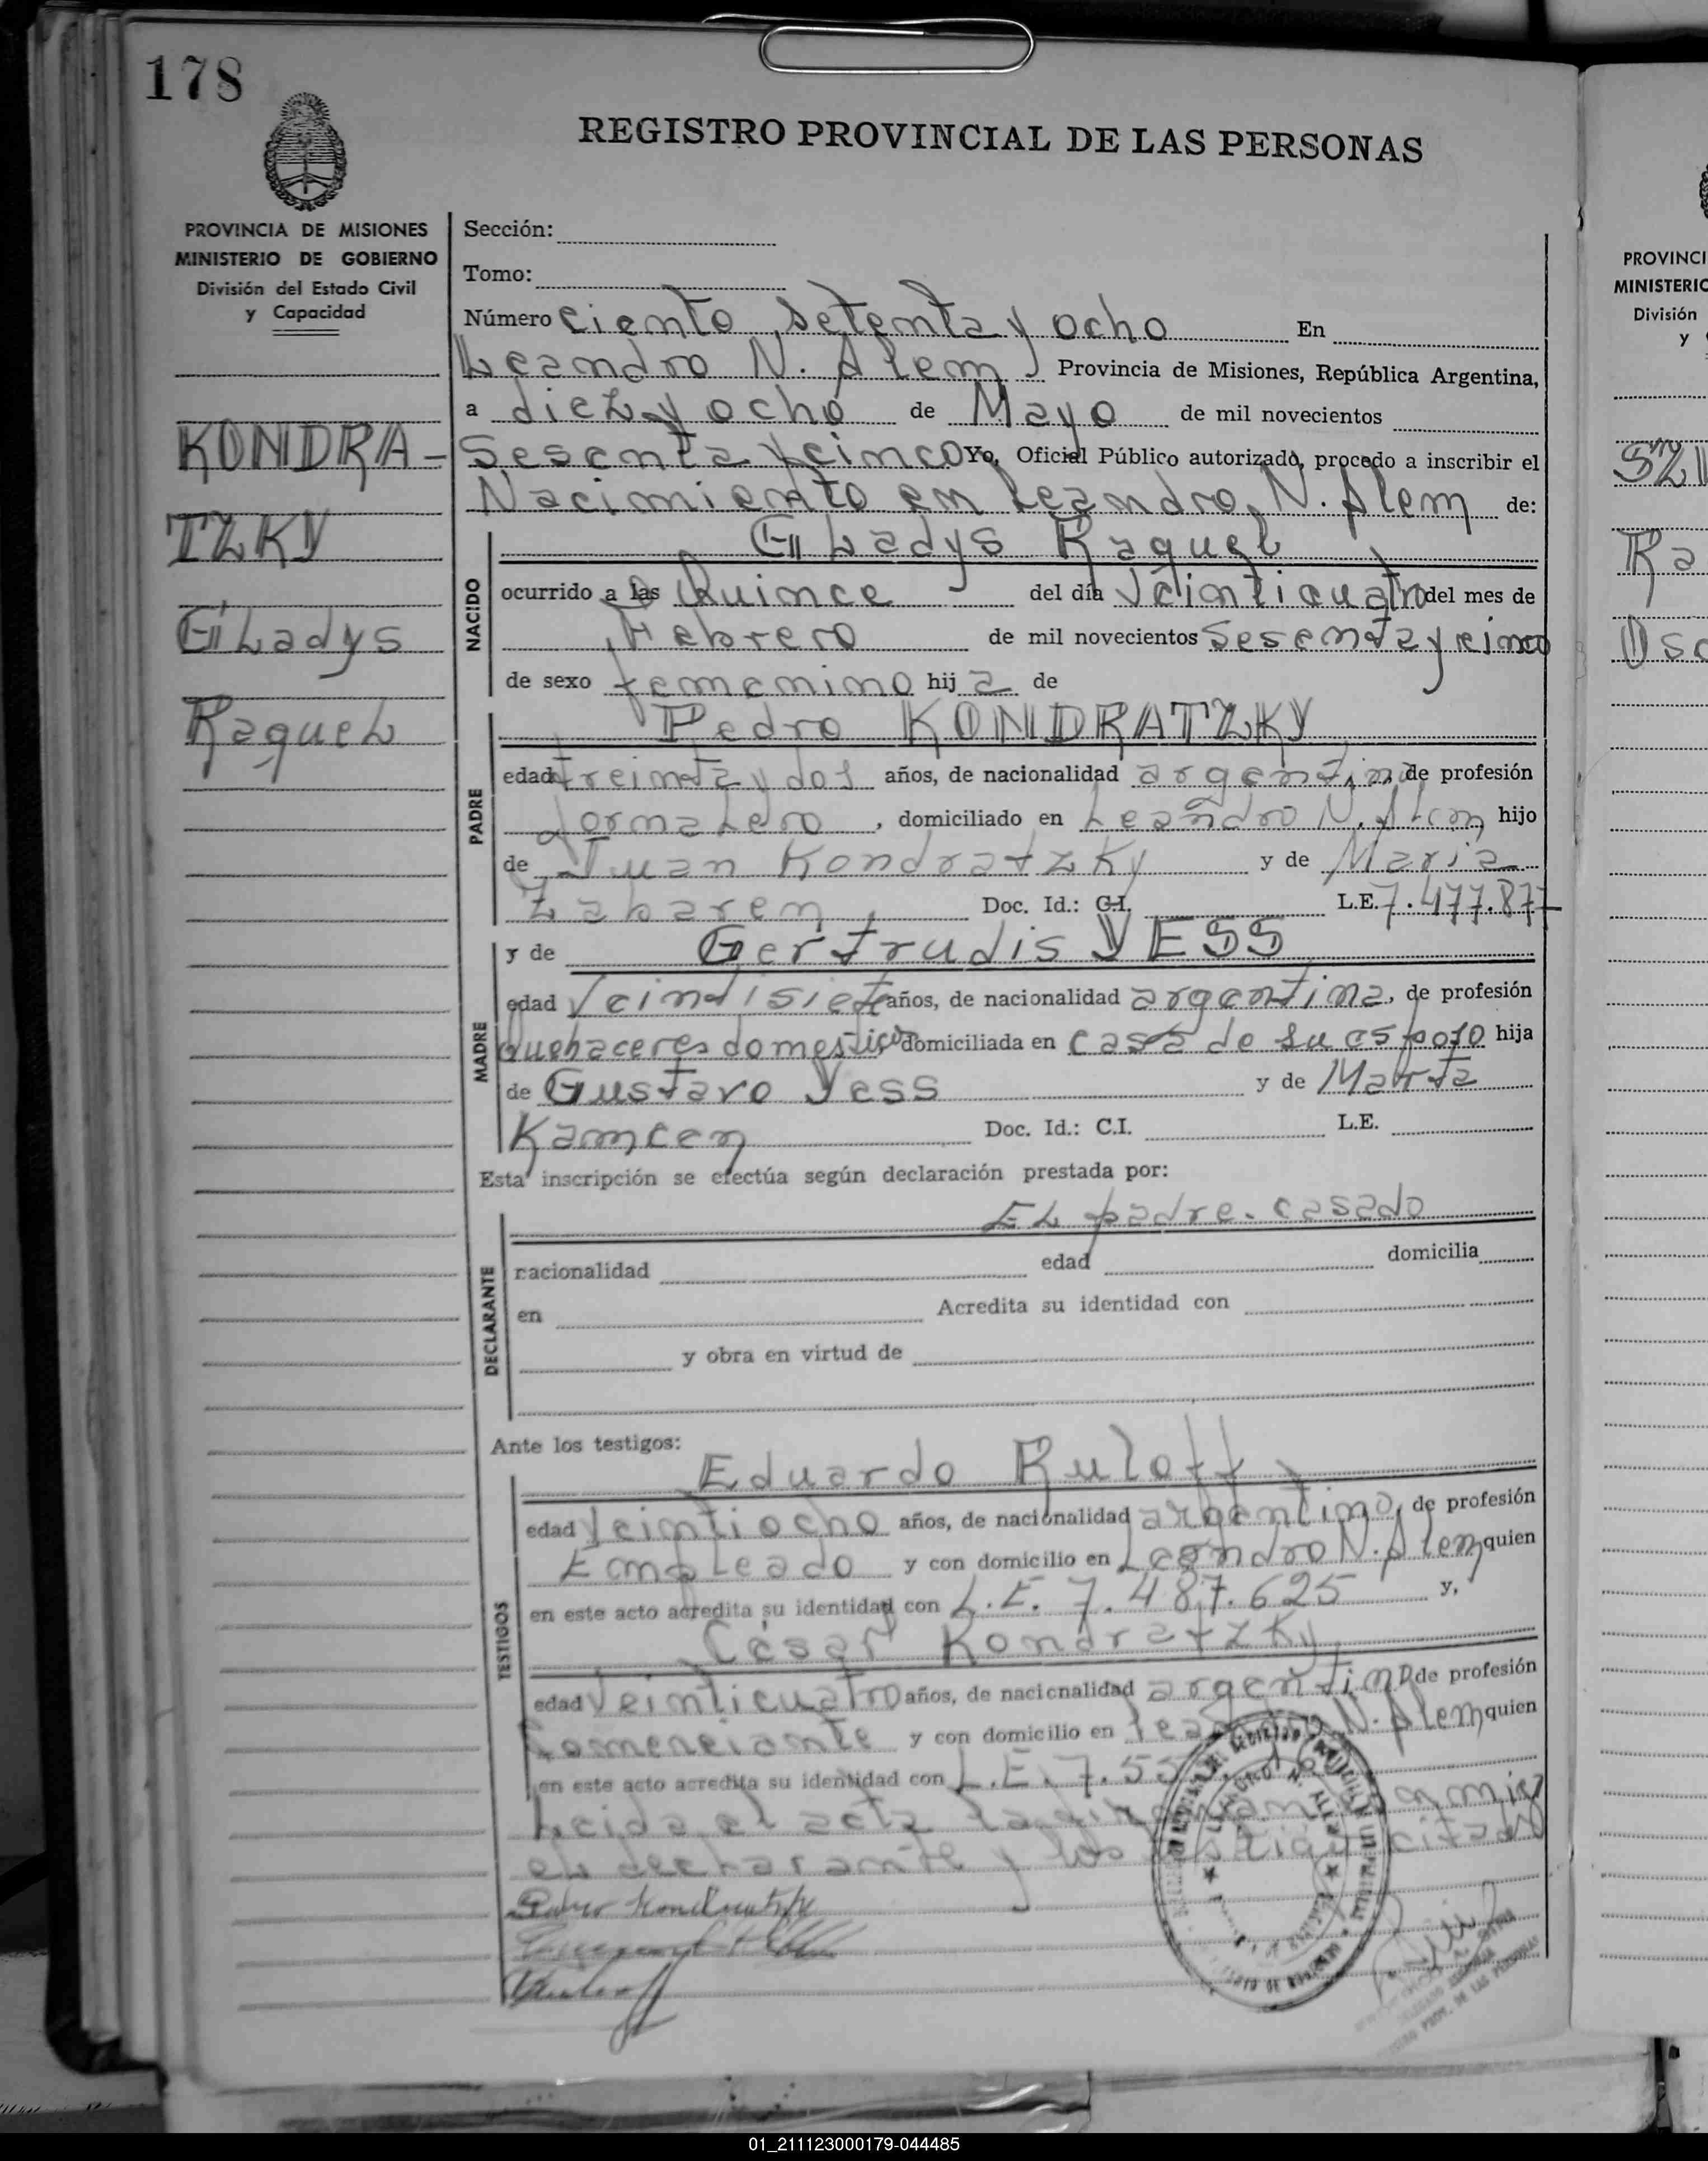 178
REGISTRO PROVINCIAL DE LAS PERSONAS
PROVINCIA DE MISIONES
MINISTERIO DE GOBIERNO
División del Estado Civil
y Capacidad
KONDRA-
TZKY
GLadys
RaqueL
Sección:
Tomo:
Número ciento setenta y ocho En
Leandro N. Alem Provincia de Misiones, República Argentina,
a diez y ocho de Mayo de mil novecientos
Sesenta y cinco Yo, Oficial Público autorizado, procedo a inscribir el
Nacimiento en Leandro N. Alem de:
NACIDO
GLadys Raquel
ocurrido a las Quince del día Veinticuatro del mes de
Febrero de mil novecientos Sesenta y cinco
de sexo femenino hij a de
PADRE
Pedro KONDRATZKY
edad treinta y dos años, de nacionalidad argentina, de profesión
JornaLero, domiciliado en Leandro N. ALem hijo
de Juan Kondratzky y de Maria
Zabaren Doc. Id.: C.I. L.E. 7.477.877
MADRE
y de Gertrudis YESS
edad Veintisiete años, de nacionalidad argentina, de profesión
Quehaceres domesticos domiciliada en casa de su esposo hija
de Gustavo Yess y de Marta
Doc. Id.: C.I. L.E.
Esta inscripción se efectúa según declaración prestada por:
DECLARANTE
EL padre. casado
nacionalidad edad domicilia
en Acredita su identidad con
y obra en virtud de
Ante los testigos:
TESTIGOS
Eduardo Ruloff
edad Veintiocho años, de nacionalidad argentino, de profesión
EmpLeado y con domicilio en Leandro N. Alem quien
en este acto acredita su identidad con L.E. 7.487.625 y,
César Kondratzky
edad Veinticuatro años, de nacionalidad argentino de profesión
Comerciante y con domicilio en Leandro N. Alem quien
en este acto acredita su identidad con L.E. 7.55
Leida el acta la firman conmigo
eL decLarante y los testigos citados
Pedro Kondratzky
PROVINCI
MINISTERIO
División
y
SZI
Ra
Osc
01_211123000179-044485